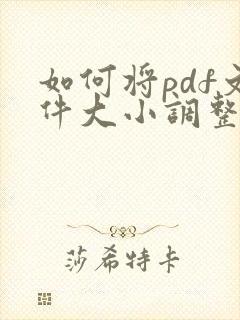 如何将pdf文
件大小調整
莎希特卡